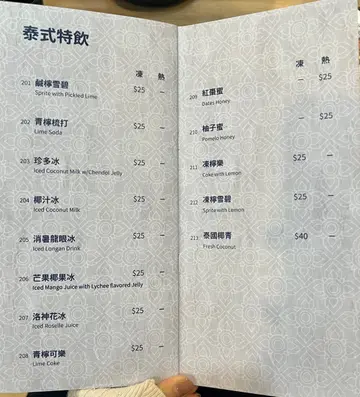 泰式特飲
凍 熱
201 鹹檸雪碧 $25 –
Sprite with Pickled Lime
202 青檸梳打 $25 –
Lime Soda
203 珍多冰 $25 –
Iced Coconut Milk w/Chendol Jelly
204 椰汁冰 $25 –
Iced Coconut Milk
205 消暑龍眼冰 $25 –
Iced Longan Drink
206 芒果椰果冰 $25 –
Iced Mango Juice with Lychee flavored Jelly
207 洛神花冰 $25 –
Iced Roselle Juice
208 青檸可樂 $25 –
Lime Coke
凍 熱
209 紅棗蜜 – $25
Dates Honey
210 柚子蜜 – $25
Pomelo Honey
211 凍檸樂 $25 –
Coke with Lemon
212 凍檸雪碧 $25 –
Sprite with Lemon
213 泰國椰青 $40 –
Fresh Coconut